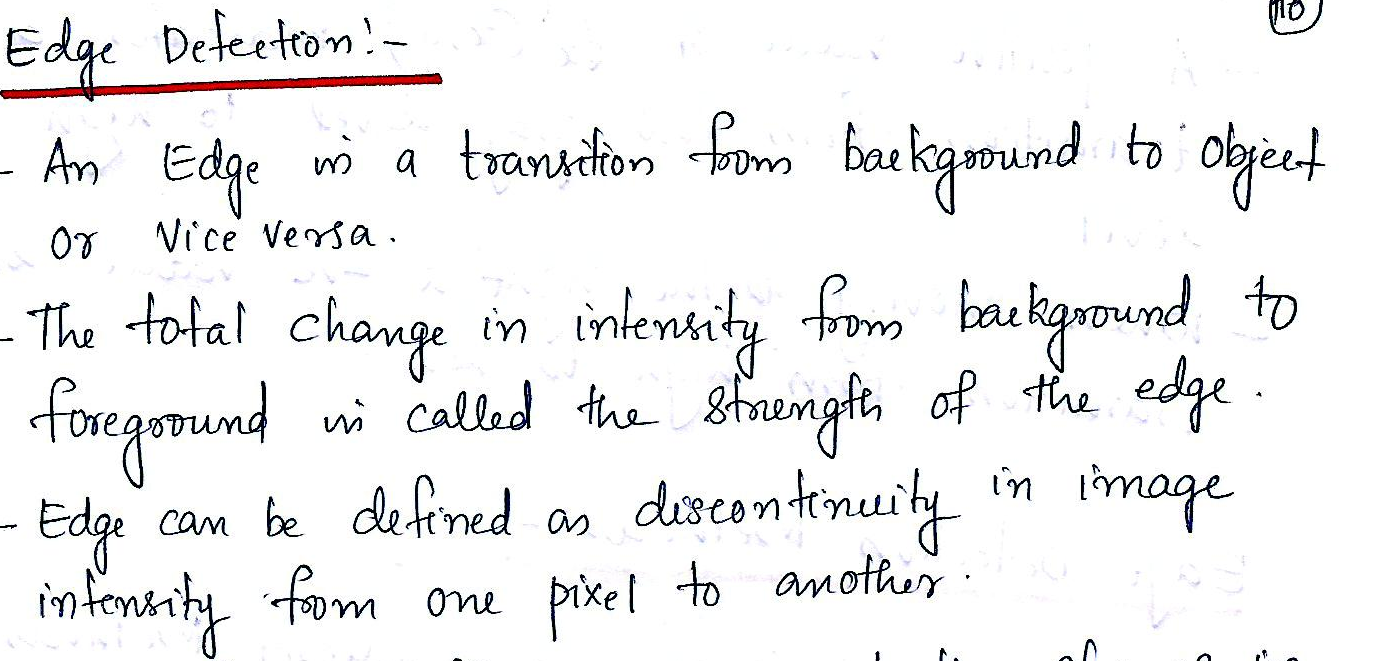 Edge Detection:-
- An Edge is a transition from background to object
or Vice versa.
- The total change in intensity from background to
foreground is called the strength of the edge.
- Edge can be defined as discontinuity in image
intensity from one pixel to another.